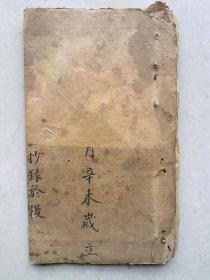 月辛未歲立
抄録於後